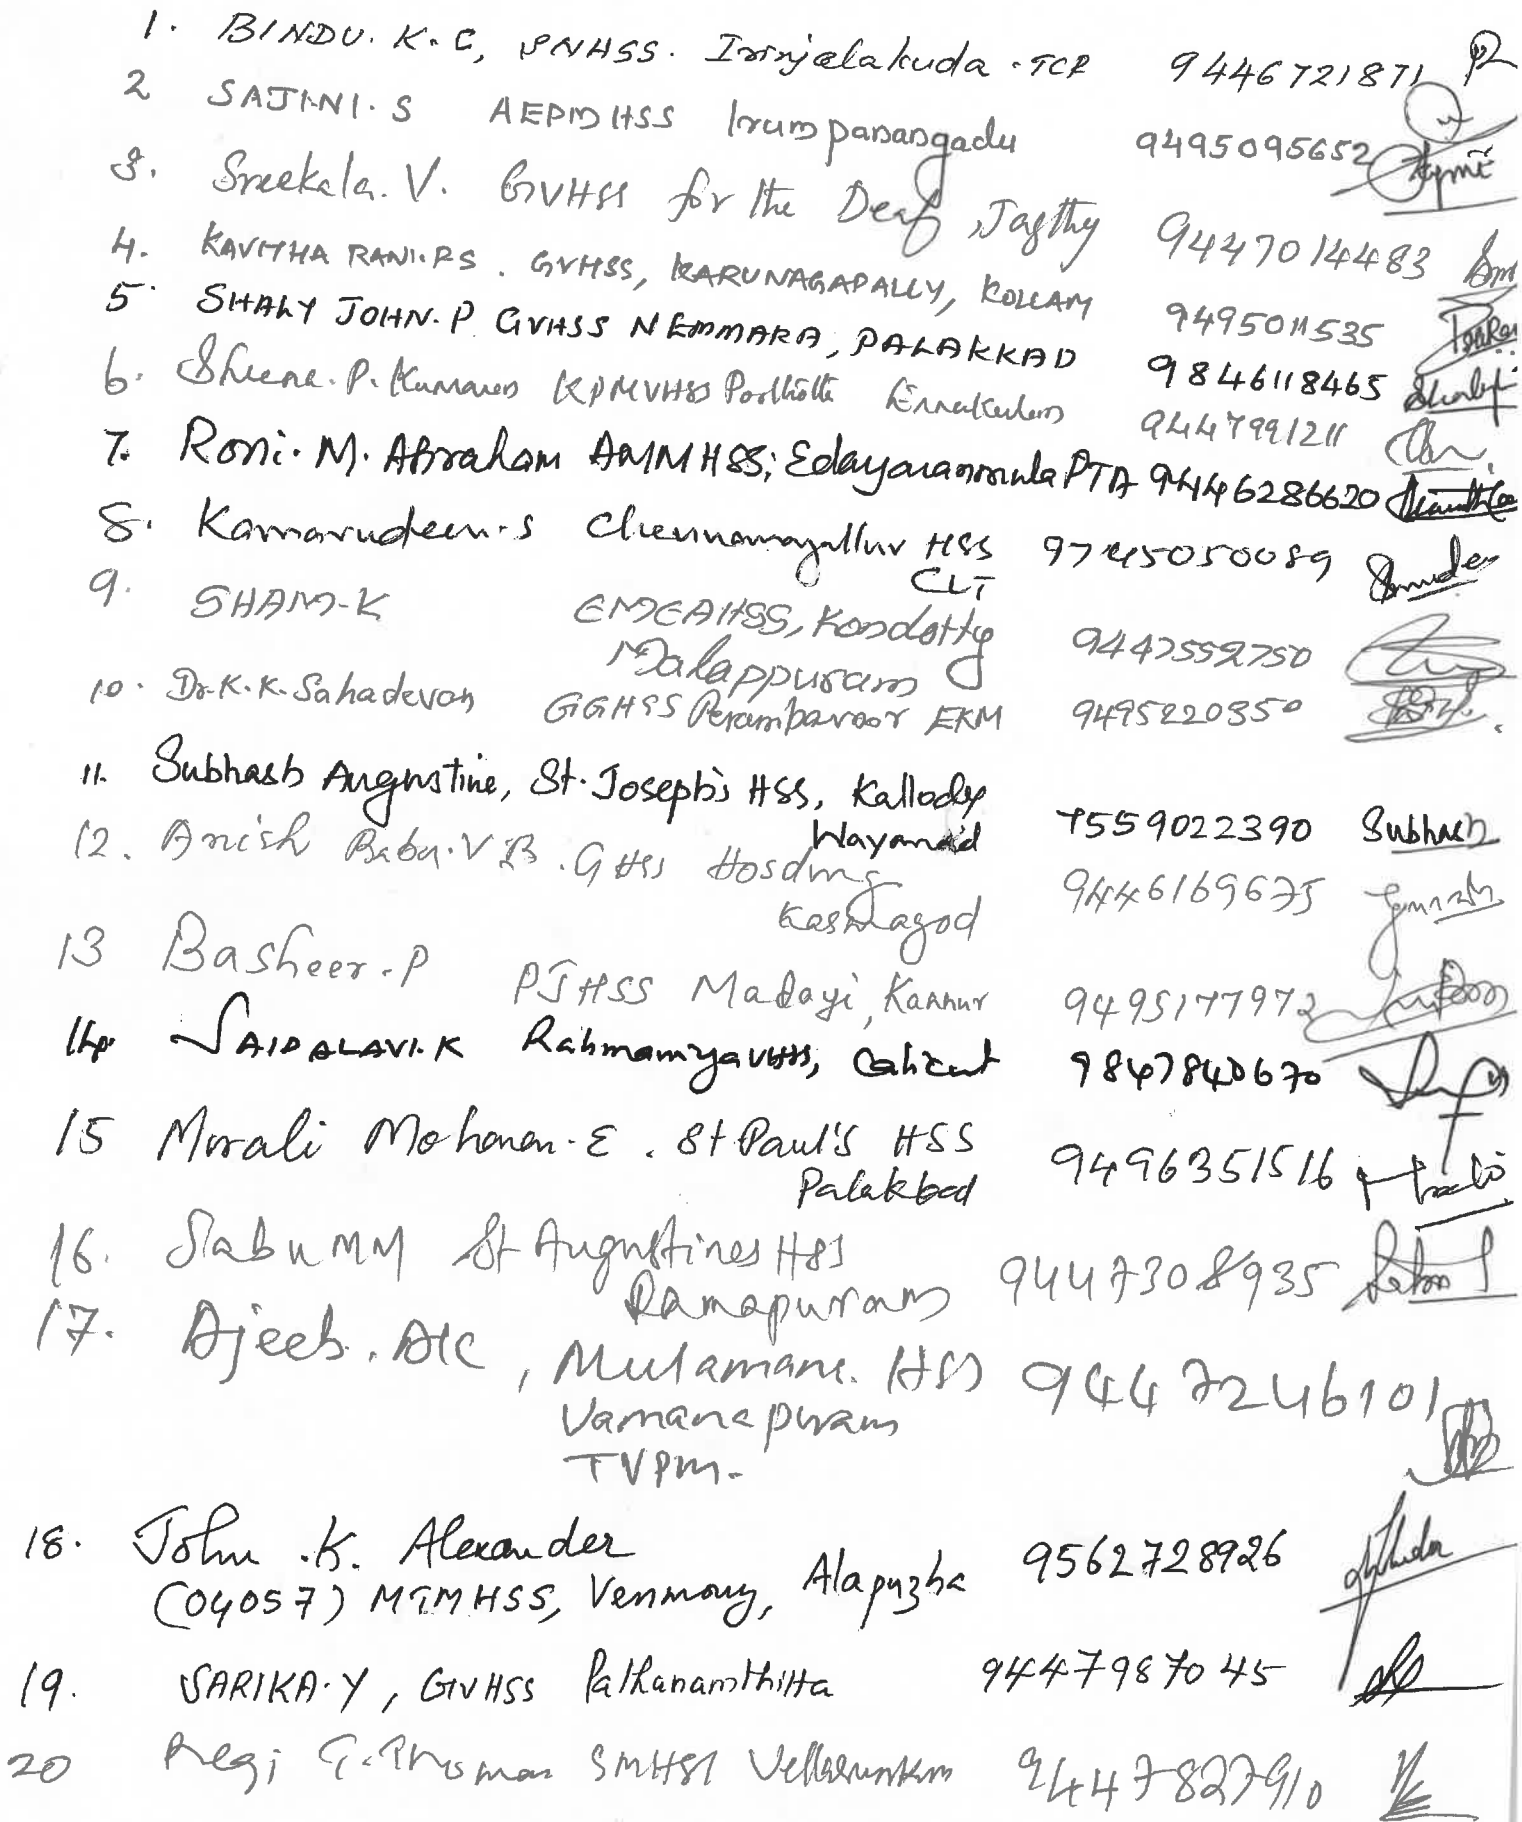 1. BINDU. K. C, SNHSS. Irinjalakuda - TCR 9446721871
2 SAJINI. S AEPMHSS Irumpanangadu 9495095652
3. Sreekala. V. GVHSS for the Deaf, Jagthy 9447014483
4. KAVITHA RANI. P.S. GVHSS, KARUNAGAPALLY, KOLLAM 9495011535
5 SHALY JOHN. P GVHSS NEMMARA, PALAKKAD 9846118465
6. Sheena. P. Kumaran KPMVHSS Poothotta Ernakulam 9447991211
7. Roni. M. Abraham AMMHSS; Edayaranmula PTA 9446286620
8. Kamarudeen. S Chennamagallur HSS 9745050089
CLT
9. SHAM-K EMEAHSS, Kondotty 9447552750
Malappuram
10. Dr. K. K. Sahadevan GGHSS Perumbavoor EKM 9495220350
11. Subhash Augustine, St. Joseph's HSS, Kallody
Wayanad 7559022390 Subhash
12. Anish Babu. V B. GHSS Hosdurg 9446169675
Kasaragod
13 Basheer. P PJHSS Madayi, Kannur 9495177972
14. SAIDALAVI. K Rahmaniya VHSS, Calicut 9847840670
15 Murali Mohanan. E. St Paul's HSS 9496351516 Murali
Palakkad
16. Sabu MM St Augustines HSS 9447308935
Ramapuram
17. Ajeeb. AK, Mulamana. HSS 9447246101
Vamanapuram
TVPM.
18. John. K. Alexander 9562728926
(04057) MTMHSS, Venmony, Alapuzha
19. SARIKA. Y, GVHSS Pathanamthitta 9447987045
20 Regi G. Thomas SMHSS 9447827910